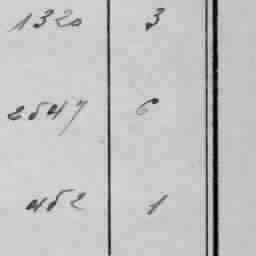 1320 3
2547 6
452 1